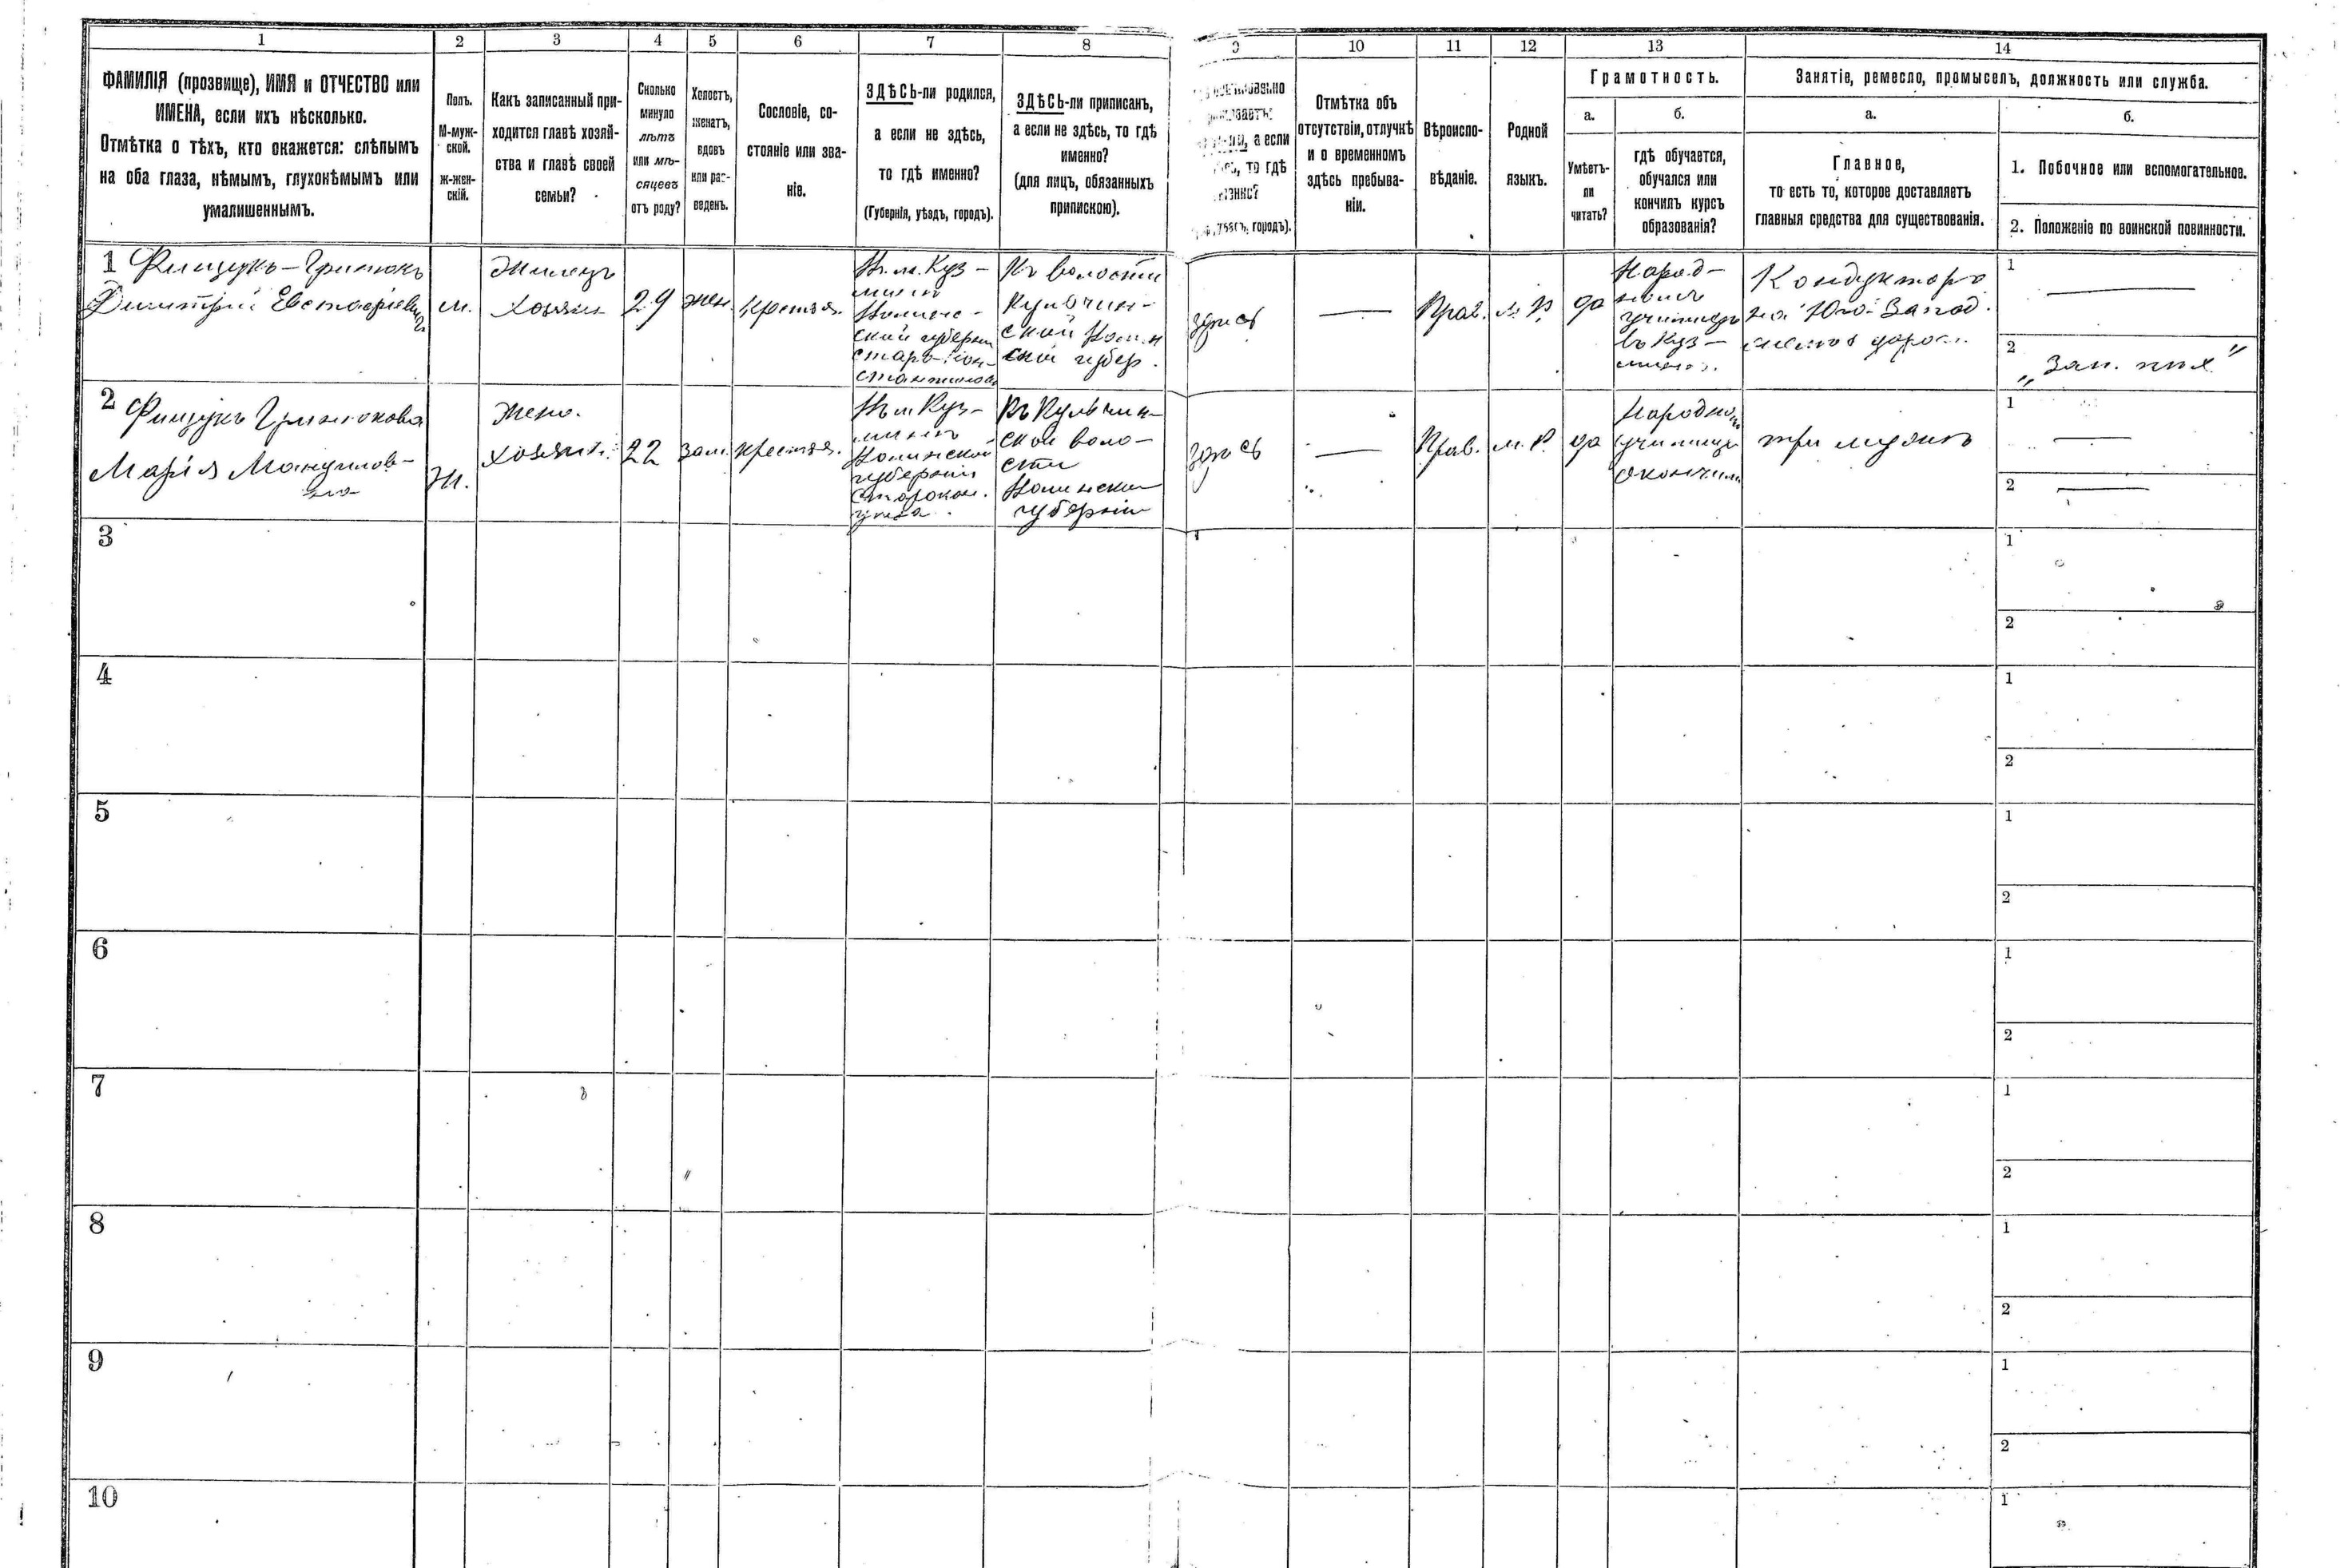 1 2 3 4 5 6 7 8 9 10 11 12 13 14
ФАМИЛІЯ (прозвище), ИМЯ и ОТЧЕСТВО или
ИМЕНА, если ихъ нѣсколько.
Отмѣтка о тѣхъ, кто окажется: слѣпымъ
на оба глаза, нѣмымъ, глухонѣмымъ или
умалишеннымъ.
Полъ.
М-муж-
ской.
Ж-жен-
скій.
Какъ записанный при-
ходится главѣ хозяй-
ства и главѣ своей
семьи?
Сколько
минуло
лѣтъ
или мѣ-
сяцевъ
отъ роду?
Холостъ,
женатъ,
вдовъ
или раз-
веденъ.
Сословіе, со-
стояніе или зва-
ніе.
ЗДѢСЬ-ли родился,
а если не здѣсь,
то гдѣ именно?
(Губернія, уѣздъ, городъ).
ЗДѢСЬ-ли приписанъ,
а если не здѣсь, то гдѣ
именно?
(для лицъ, обязанныхъ
припискою).
а если
то гдѣ
городъ).
Отмѣтка объ
отсутствіи, отлучкѣ
и о временномъ
здѣсь пребыва-
ніи.
Вѣроиспо-
вѣданіе.
Родной
языкъ.
Грамотность.
а.
Умѣетъ-
ли
читать?
б.
гдѣ обучается,
обучался или
кончилъ курсъ
образованія?
Занятіе, ремесло, промыселъ, должность или служба.
а.
Главное,
то есть то, которое доставляетъ
главныя средства для существованія.
б.
1. Побочное или вспомогательное.
2. Положеніе по воинской повинности.
1
Димитрій Евстафіевичъ
м.
Жилецъ
Хозяин
29
жен.
Крестья.
Куз-
ской губерніи
Старо-Кон-
Къ волости
Кульчин-
ской
ской губер.
здѣсь
—
Прав.
м. Р.
да
Народ-
номъ
училищѣ
въ Куз-
Кондукторъ
на Юго-Запад.
дорог.
1
—
2
„Зап.
2
Марія
Ж.
Жена
хозяина
22
зам.
крестья.
Куз-
губерніи
Староко.
Къ Кульчин-
ской воло-
сти
губерніи
здѣсь
—
Прав.
м. Р.
да
Народном
училище
окончила
при мужѣ
1
—
2
—
3
1
2
4
1
2
5
1
2
6
1
2
7
1
2
8
1
2
9
1
2
10
1